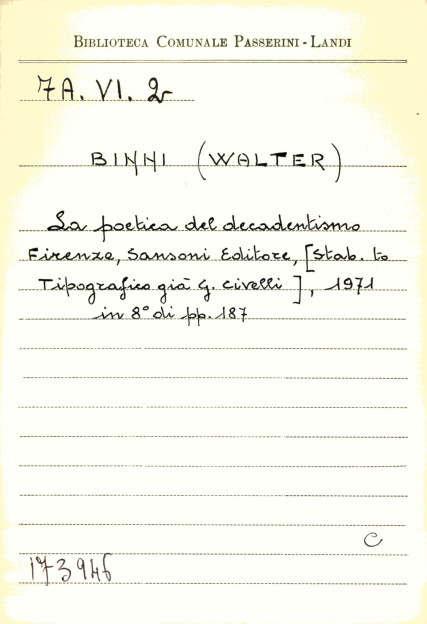 BIBLIOTECA COMUNALE PASSERINI - LANDI
7A. VI. 2
BINNI (WALTER)
La poetica del decadentismo
Firenze, Sansoni Editore, [Stab. to
Tipografico già G. Civelli ], 1971
in 8° di pp. 187
C
173946